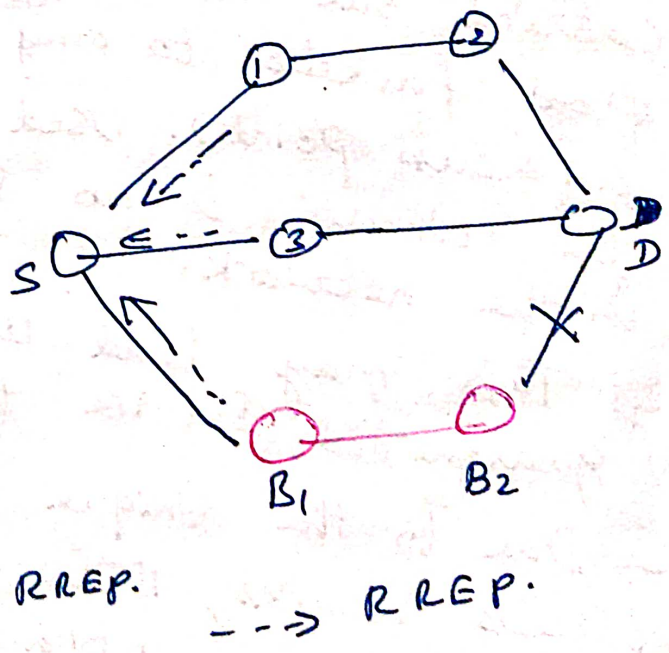 1
2
3
S
D
B1
B2
RREP.
RREP.